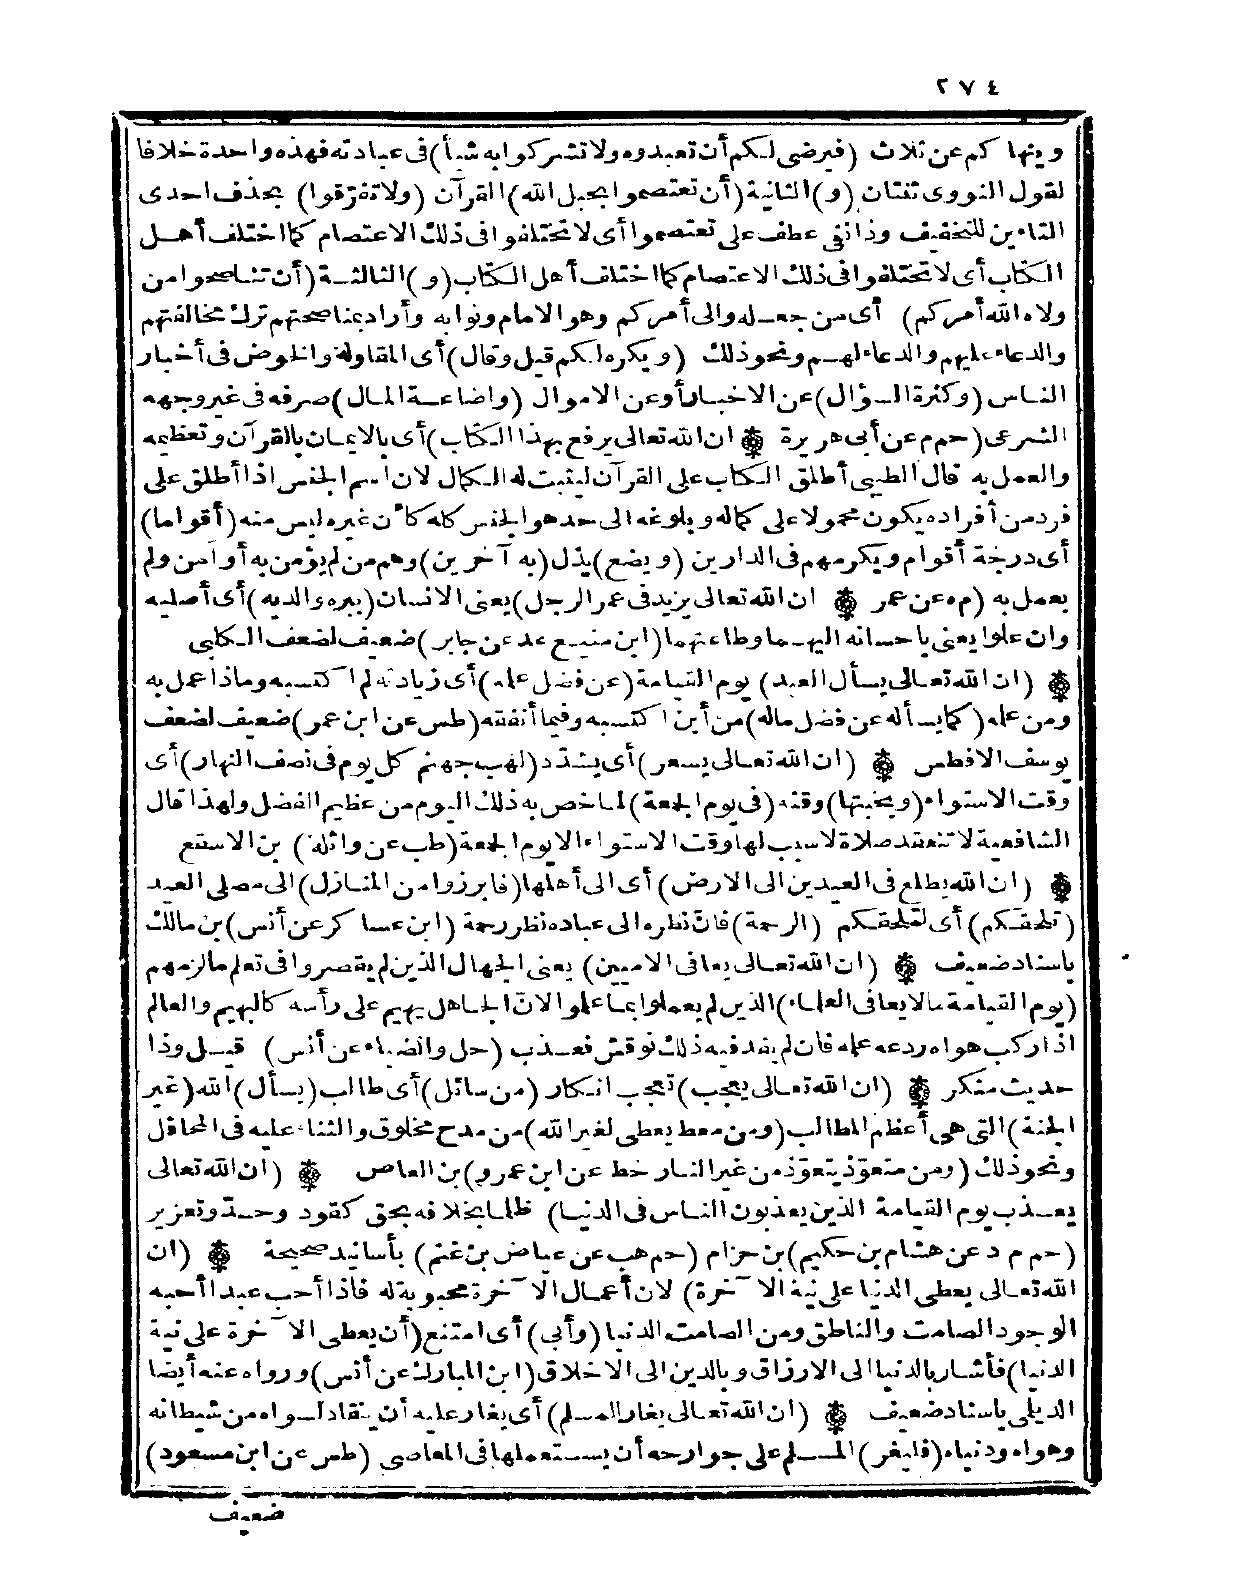 ٢٧٤
وينها كم عن ثلاث (فيرضى لكم أن تعبدوه ولا تشركوا به شيأ) فى عبادته فهذه واحدة خلافا
لقول النووى ثنتان (و) الثانية (أن تعتصموا بحبل الله) القرآن (ولا تفرّقوا) بحذف احدى
التاءين للتخفيف وذا نفى عطف على تعتصموا أى لا تختلفوا فى ذلك الاعتصام كما اختلف أهل
الكتاب أى لا تختلفوا فى ذلك الاعتصام كما اختلف أهل الكتاب (و) الثالثة (أن تناصحوا من
ولاه الله أمركم) أى من جعله والى أمركم وهو الامام ونوابه وأراد بمناصحتهم ترك مخالفتهم
والدعاء عليهم والدعاء لهم ونحو ذلك (ويكره لكم قيل وقال) أى المقاولة والخوض فى أخبار
الناس (وكثرة السؤال) عن الاخبار أو عن الاموال (واضاعة المال) صرفه فى غير وجهه
الشرعى (حم م عن أبى هريرة ۞ ان الله تعالى يرفع بهذا الكتاب) أى بالايمان بالقرآن وتعظيمه
والعمل به قال الطيبى أطلق الكتاب على القرآن ليثبت له الكمال لان اسم الجنس اذا أطلق على
فرد من أفراده يكون محمولا على كماله وبلوغه الى حد هو الجنس كله كأن غيره ليس منه (أقواما)
أى درجة أقوام ويكرمهم فى الدارين (ويضع) يذل (به آخرين) وهم من لم يؤمن به أو آمن ولم
يعمل به (م ه عن عمر ۞ ان الله تعالى يزيد فى عمر الرجل) يعنى الانسان (ببره والديه) أى أصليه
وان علوا يعنى باحسانه اليهما وطاعتهما (ابن منيع عد عن جابر) ضعيف لضعف الكلبى
۞ (ان الله تعالى يسأل العبد) يوم القيامة (عن فضل علمه) أى زيادته لم اكتسبه وماذا عمل به
ومن علمه (كما يسأله عن فضل ماله) من أين اكتسبه وفيما أنفقه (طس عن ابن عمر) ضعيف لضعف
يوسف الافطس ۞ (ان الله تعالى يسعر) أى يشدّد (لهب جهنم كل يوم فى نصف النهار) أى
وقت الاستواء (ويخبتها) وقته (فى يوم الجمعة) لما خص به ذلك اليوم من عظيم الفضل ولهذا قال
الشافعية لا تنعقد صلاة لا سبب لها وقت الاستواء الا يوم الجمعة (طب عن واثلة) بن الاسقع
۞ (ان الله يطلع فى العيدين الى الارض) أى الى أهلها (فابرزوا من المنازل) الى مصلى العيد
(تلحقكم) أى لتلحقكم (الرحمة) فانّ نظره الى عباده نظر رحمة (ابن عساكر عن أنس) بن مالك
باسناد ضعيف ۞ (ان الله تعالى يعافى الاميين) يعنى الجهال الذين لم يقصروا فى تعلم ما لزمهم
(يوم القيامة ما لا يعافى العلماء) الذين لم يعملوا بما علموا لانّ الجاهل يهيم على رأسه كالبهيم والعالم
اذا ركب هواه ردعه علمه فان لم يفد فيه ذلك نوقش فعذب (حل والضياء عن أنس) قيل وذا
حديث منكر ۞ (ان الله تعالى يعجب) تعجب انكار (من سائل) أى طالب (يسأل) الله (غير
الجنة) التى هى أعظم المطالب (ومن معط يعطى لغير الله) من مدح مخلوق والثناء عليه فى المحافل
ونحو ذلك (ومن متعوّذ يتعوّذ من غير النار خط عن ابن عمرو) بن العاص ۞ (ان الله تعالى
يعذب يوم القيامة الذين يعذبون الناس فى الدنيا) ظلما بخلافه بحق كقود وحدّ وتعزير
(حم م د عن هشام بن حكيم) بن حزام (حم هب عن عياض بن غنم) بأسانيد صحيحة ۞ (ان
الله تعالى يعطى الدنيا على نية الآخرة) لان أعمال الآخرة محبوبة له فاذا أحب عبدا أحبه
الوجود الصامت والناطق ومن الصامت الدنيا (وأبى) أى امتنع (أن يعطى الآخرة على نية
الدنيا) فأشار بالدنيا الى الارزاق وبالدين الى الاخلاق (ابن المبارك عن أنس) ورواه عنه أيضا
الديلى باسناد ضعيف ۞ (ان الله تعالى يغار للمسلم) أى يغار عليه أن ينقاد لسواه من شيطانه
وهواه ودنياه (فليغر) المسلم على جوارحه أن يستعملها فى المعاصى (طس عن ابن مسعود)
ضعيف